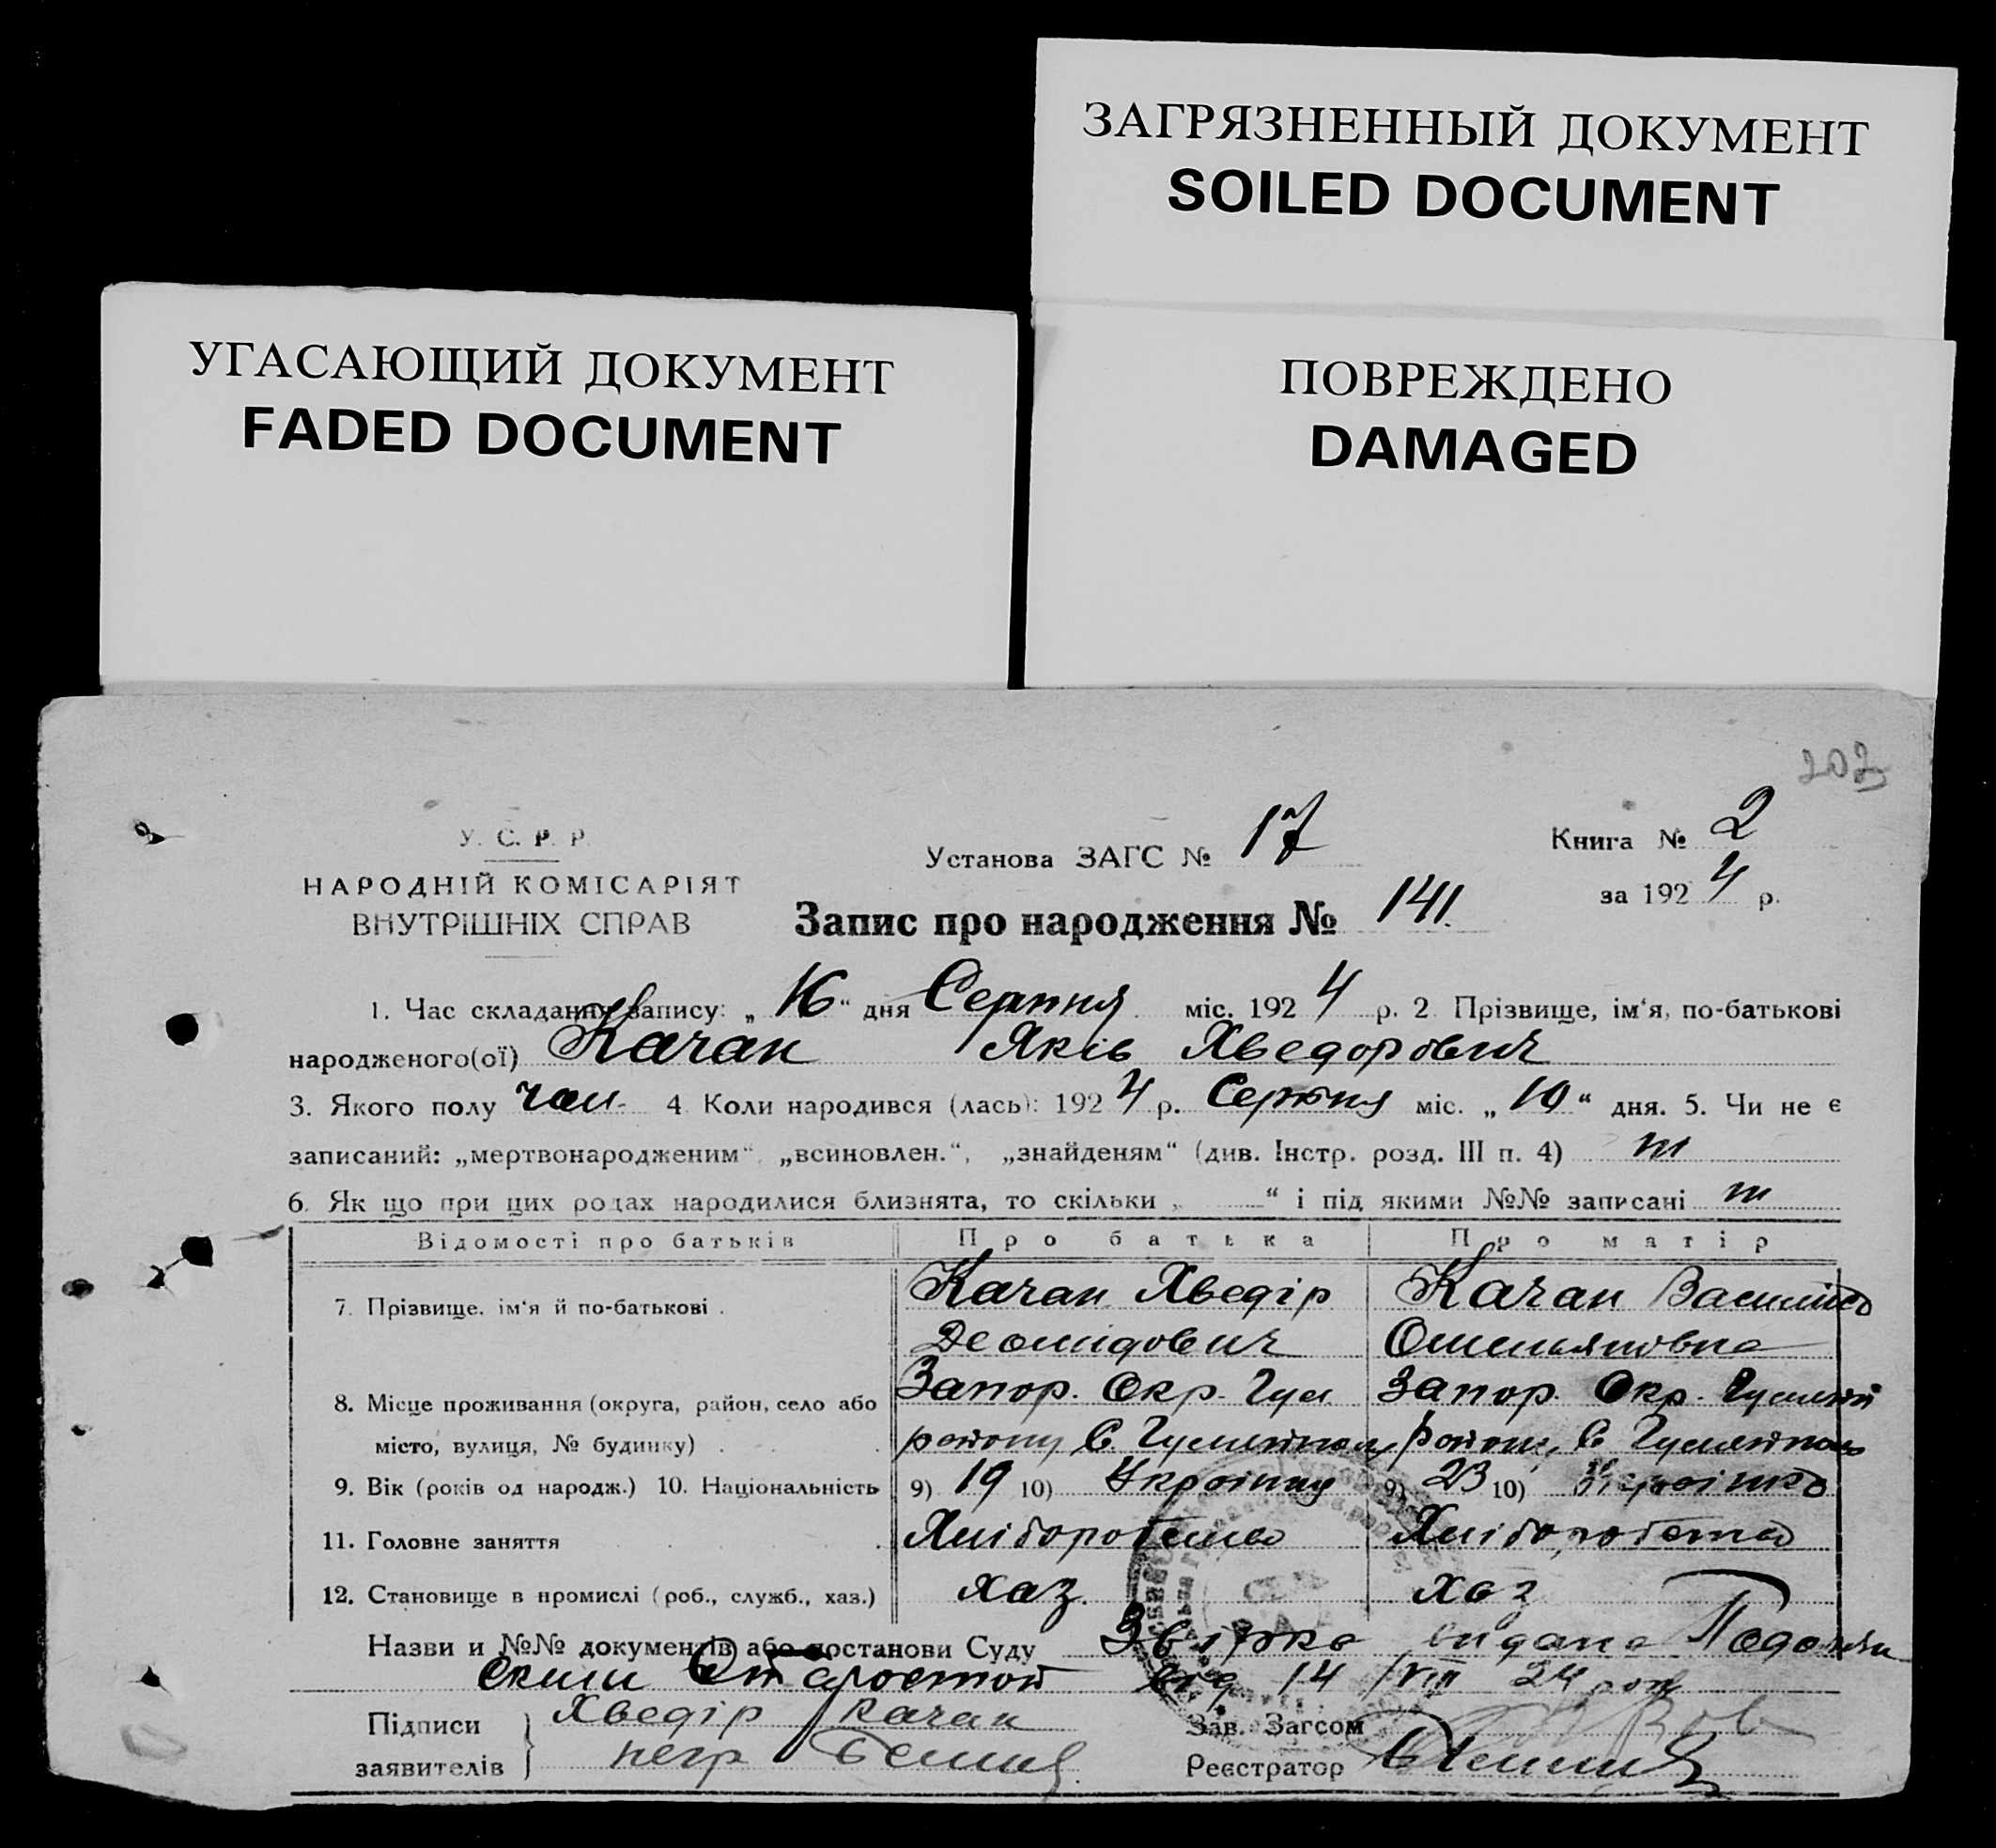 ЗАГРЯЗНЕННЫЙ ДОКУМЕНТ
SOILED DOCUMENT
УГАСАЮЩИЙ ДОКУМЕНТ
FADED DOCUMENT
ПОВРЕЖДЕНО
DAMAGED
У. С. Р. Р.
НАРОДНІЙ КОМІСАРІЯТ
ВНУТРІШНІХ СПРАВ
Установа ЗАГС № 17
Книга № 2
за 1924 р.
Запис про народження № 141.
1. Час складання запису: „16“ дня Серпня міс. 1924 р. 2. Прізвище, ім‘я, по-батькові
народженого(ої) Качан Яків Хведорович
3. Якого полу чол. 4 Коли народився (лась): 1924 р. Серпня міс. „10“ дня. 5. Чи не є
записаний: „мертвонародженим“, „всиновлен.“, „знайденям“ (див. Інстр. розд. III п. 4)
6. Як що при цих родах народилися близнята, то скільки „ “ і під якими №№ записані
Відомості про батьків Про батька Про матір
7. Прізвище. ім‘я й по-батькові . Качан Хведір Качан
Деомідович Омельяновна
8. Місце проживання (округа, район, село або Запор. Окр. Гул. Запор. Окр.
місто, вулиця, № будинку) . району С. району С.
9. Вік (років од народж.) 10. Національність 9) 19 10) 9) 23 10)
11. Головне заняття Хлібороб Хлібороб
12. Становище в промислі (роб., служб., хаз.) хаз. хаз
Назви и №№ документів або постанови Суду видана
від 14/VIII 24 року
Підписи Хведір Качан Зав. Загсом
заявителів Реєстратор